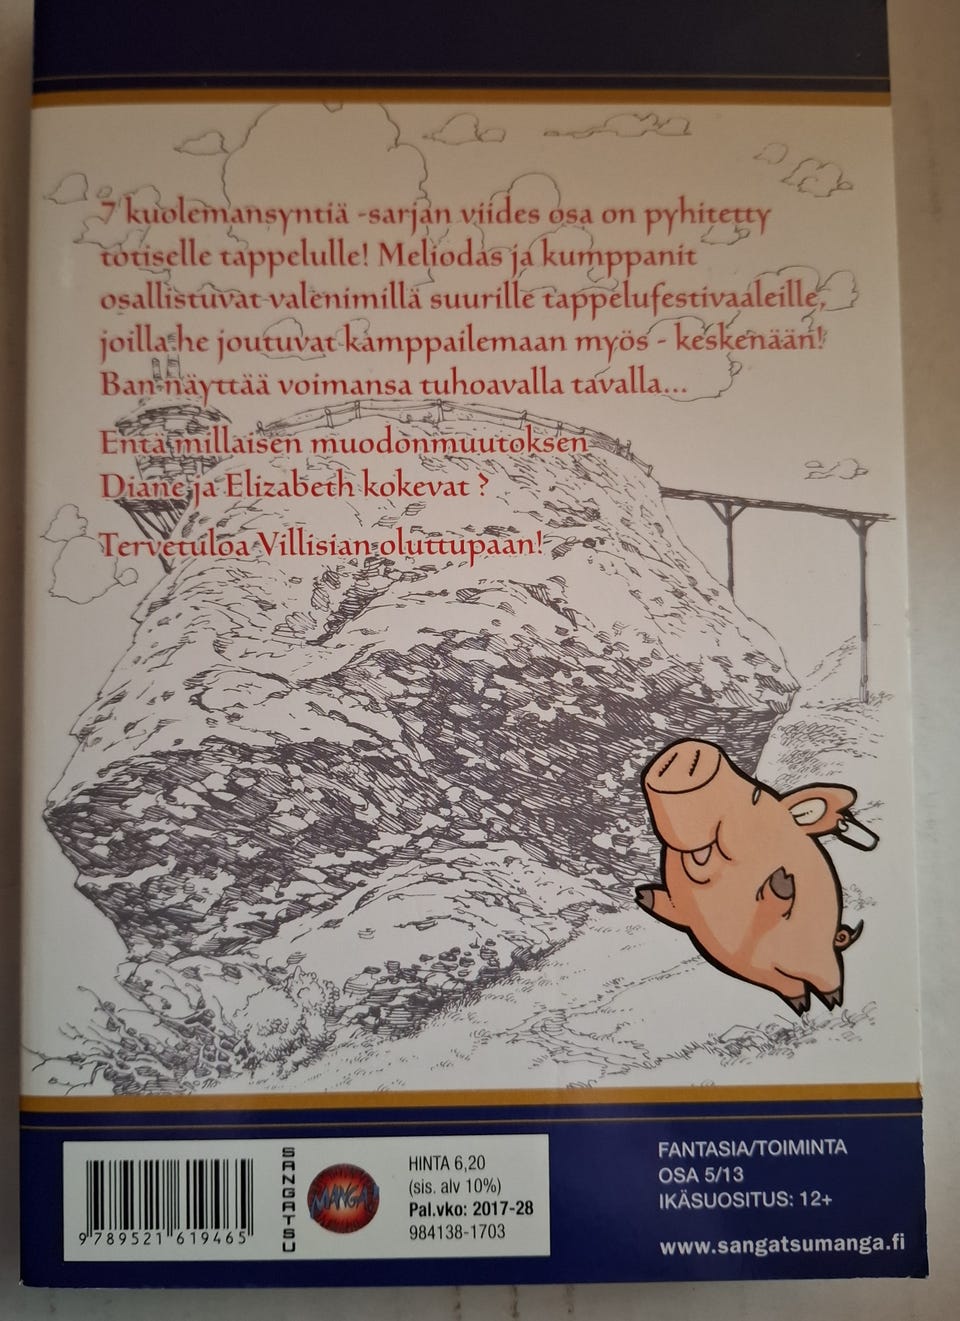 7 kuolemansyntiä -sarjan viides osa on pyhitetty
totiselle tappelulle! Meliodas ja kumppanit
osallistuvat valenimillä suurille tappelufestivaaleille,
joilla he joutuvat kamppailemaan myös - keskenään!
Ban näyttää voimansa tuhoavalla tavalla...
Entä millaisen muodonmuutoksen
Diane ja Elizabeth kokevat ?
Tervetuloa Villisian oluttupaan!
9 789521 619465
SANGATSU
MANGA!
HINTA 6,20
(sis. alv 10%)
Pal.vko: 2017-28
984138-1703
FANTASIA/TOIMINTA
OSA 5/13
IKÄSUOSITUS: 12+
www.sangatsumanga.fi